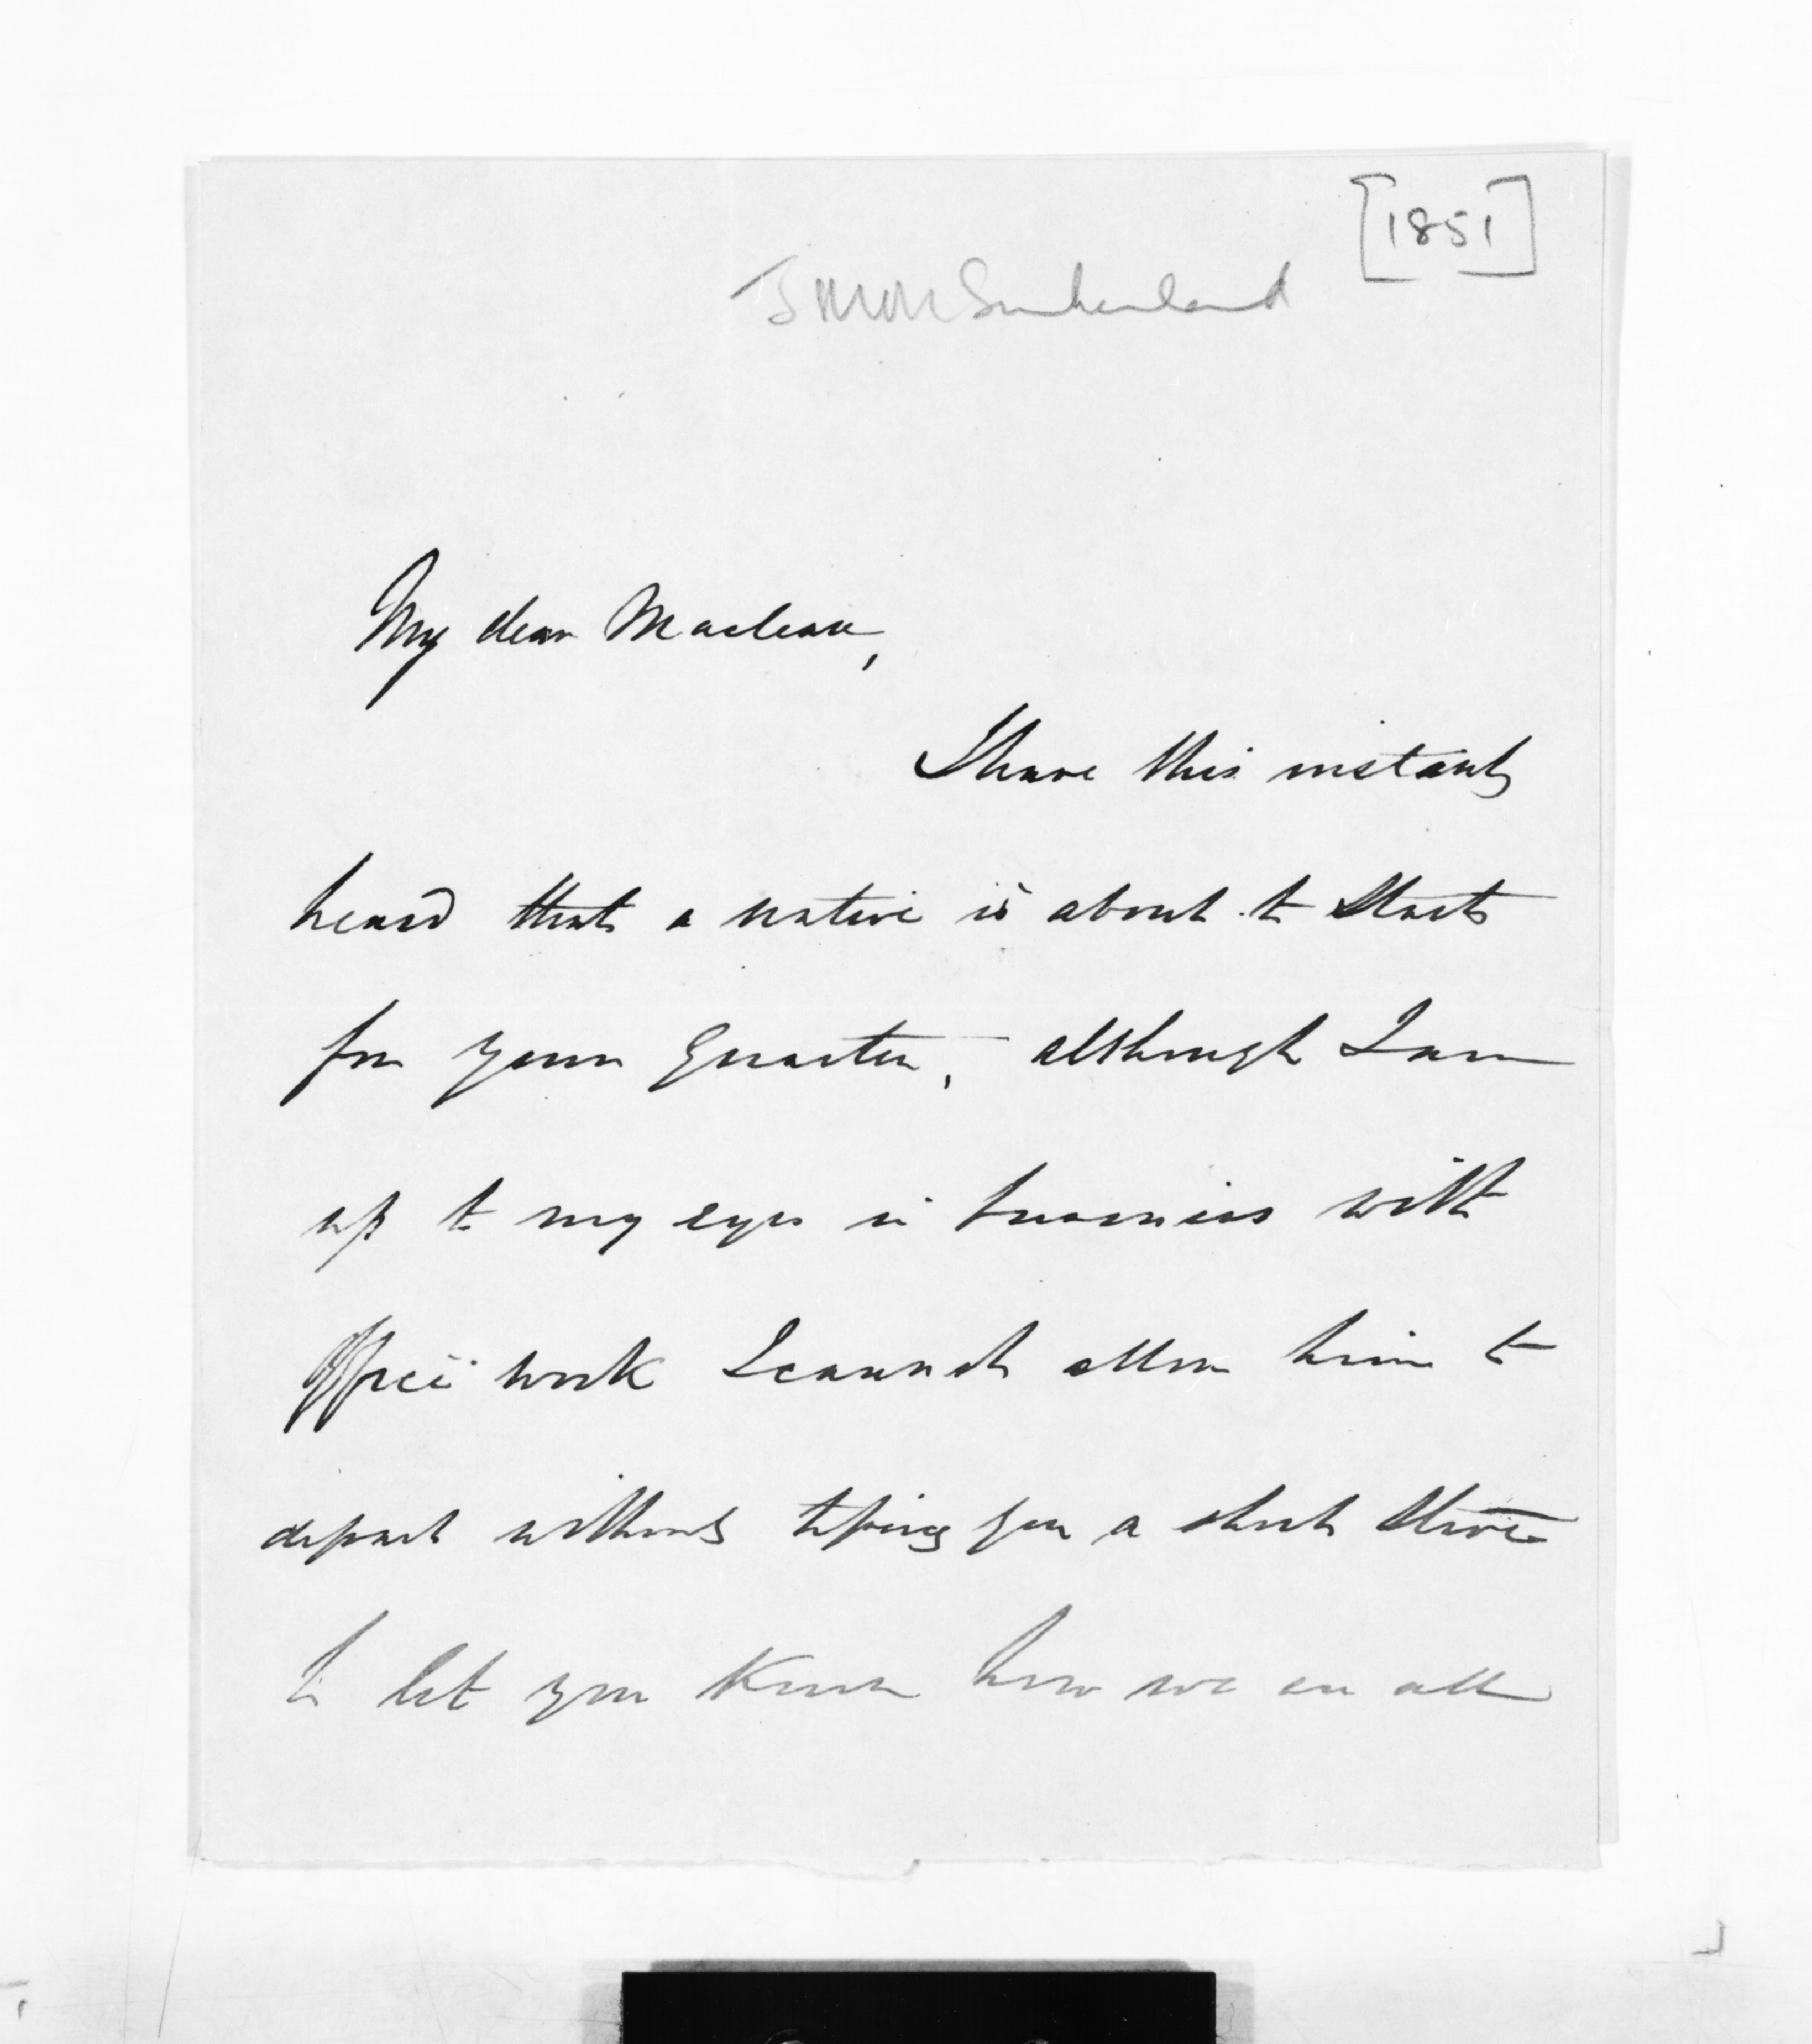 [1851]
Sutherland
My dear Maclean,
I have this instant
heard that a native is about to start
for your quarter, although I am
up to my eyes in business with
Office work I cannot allow him to
depart without tiping you a short
to let you know how we are all